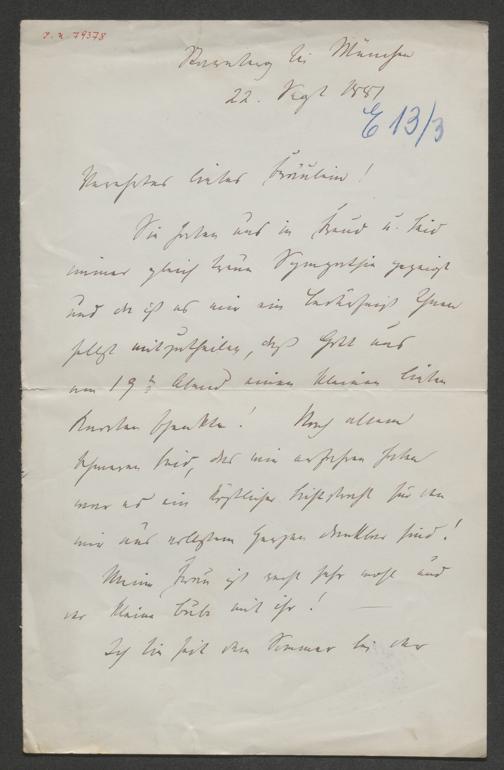 J. N. 79378
Starnberg bei München
22. Sept 1881
E 13/3
Verehrtes liebes Fräulein!
Sie haben uns in Freud u. Leid
immer gleich treue Sympathie gezeigt
und da ist es mir ein Bedürfniß Ihnen
selbst mitzutheilen, daß Gott uns
am 19t Abend einen kleinen lieben
Knaben schenkte! Nach allem
schweren Leid, das wir erfahren haben
war es ein köstlicher Lichtstrahl für den
wir aus Herzen dankbar sind!
Meine Frau ist recht sehr wohl und
der kleine Bube mit ihr! —
Ich bin seit dem Sommer bei der